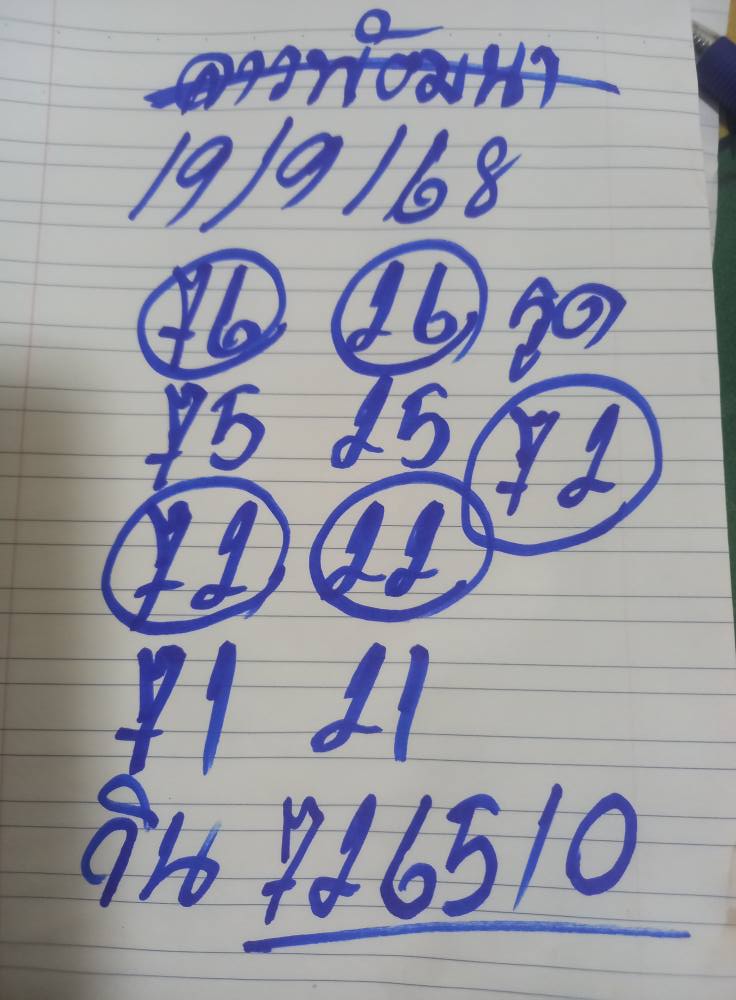 ลาวพัฒนา
19/9/68
76 26 รูด
75 25 72
72 22
71 21
วิน 726510